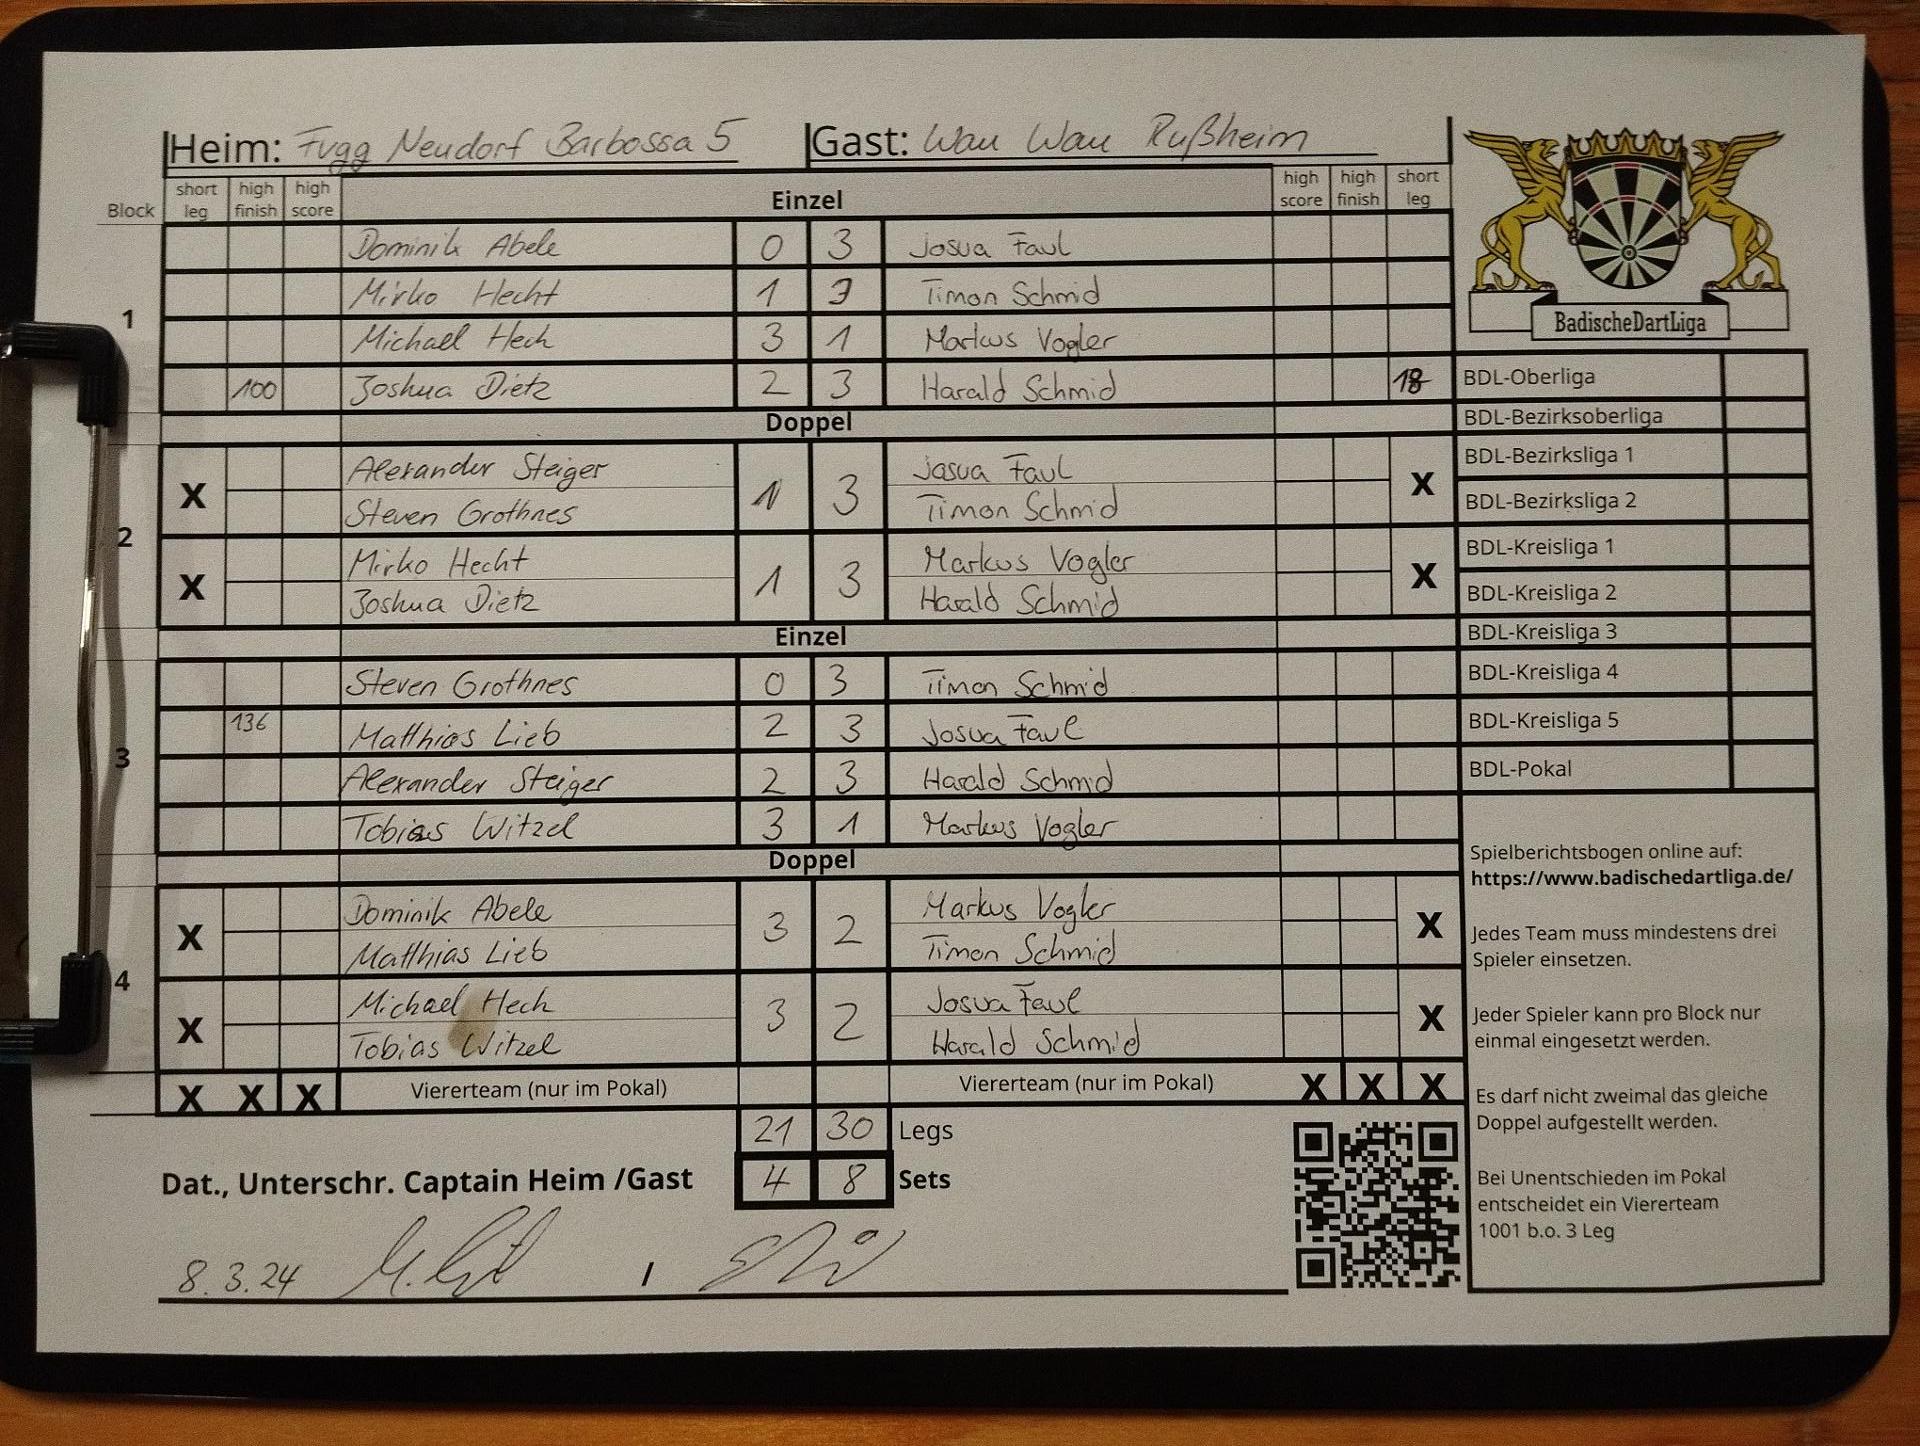 Heim: Fugg Neudorf Barbossa 5 Gast: Wau Wau Rußheim
Block short leg high finish high score Einzel high score high finish short leg
Dominik Abele 0 3 Josua Faul
Mirko Hecht 1 3 Timon Schmid
1
Michael Hech 3 1 Markus Vogler
100 Joshua Dietz 2 3 Harald Schmid 18
Doppel
Alexander Steiger 1 3 Josua Faul
X X
Steven Grothnes Timon Schmid
2
Mirko Hecht 1 3 Markus Vogler
X X
Joshua Dietz Harald Schmid
Einzel
Steven Grothnes 0 3 Timon Schmid
136 Matthias Lieb 2 3 Josua Faul
3
Alexander Steiger 2 3 Harald Schmid
Tobias Witzel 3 1 Markus Vogler
Doppel
Dominik Abele 3 2 Markus Vogler
X X
Matthias Lieb Timon Schmid
4
Michael Hech 3 2 Josua Faul
X X
Tobias Witzel Harald Schmid
X X X Viererteam (nur im Pokal) Viererteam (nur im Pokal) X X X
21 30 Legs
Dat., Unterschr. Captain Heim /Gast 4 8 Sets
8.3.24 /
BadischeDartLiga
BDL-Oberliga
BDL-Bezirksoberliga
BDL-Bezirksliga 1
BDL-Bezirksliga 2
BDL-Kreisliga 1
BDL-Kreisliga 2
BDL-Kreisliga 3
BDL-Kreisliga 4
BDL-Kreisliga 5
BDL-Pokal
Spielberichtsbogen online auf:
https://www.badischedartliga.de/
Jedes Team muss mindestens drei
Spieler einsetzen.
Jeder Spieler kann pro Block nur
einmal eingesetzt werden.
Es darf nicht zweimal das gleiche
Doppel aufgestellt werden.
Bei Unentschieden im Pokal
entscheidet ein Viererteam
1001 b.o. 3 Leg